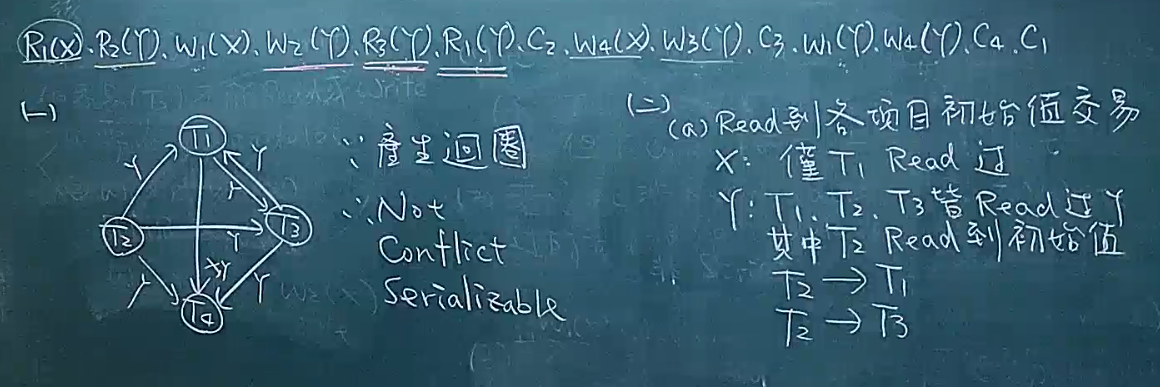 R₁(X)、R₂(Y)、W₁(X)、W₂(Y)、R₃(Y)、R₁(Y)、C₂、W₄(X)、W₃(Y)、C₃、W₁(Y)、W₄(Y)、C₄、C₁
(一)
T₁
Y
Y
Y
T₂
Y
T₃
Y
X,Y
Y
T₄
∵產生迴圈
∴Not
Conflict
Serializable
(二)
(a) Read到各项目初始值交易
X: 僅T₁ Read 过
Y: T₁、T₂、T₃皆 Read过Y
其中T₂ Read到初始值
T₂ → T₁
T₂ → T₃